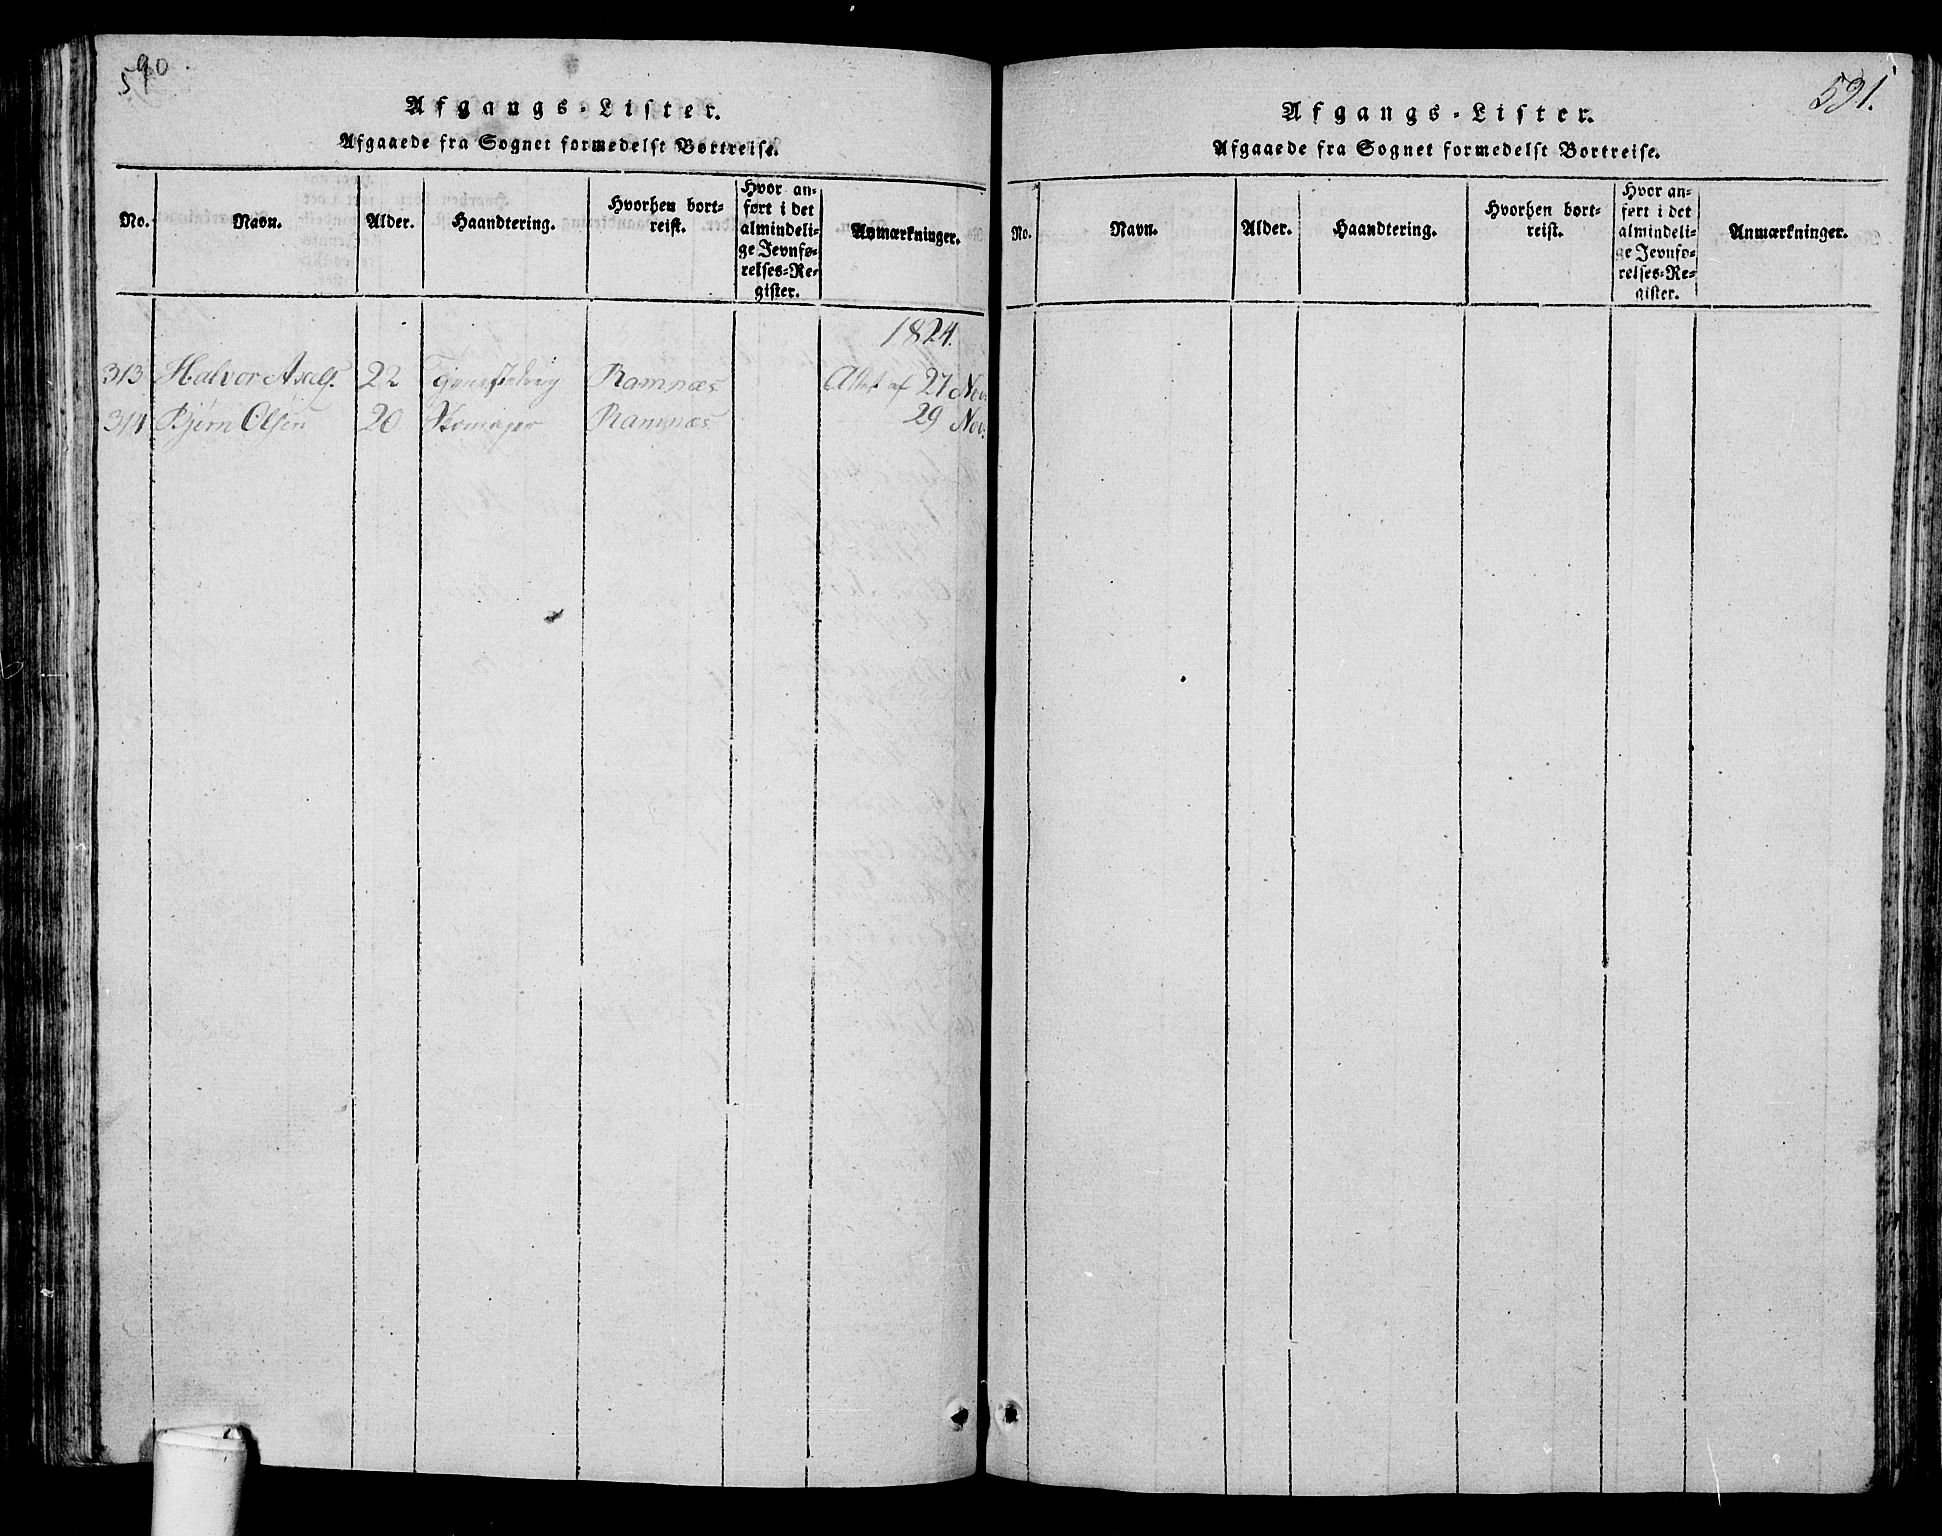 590
Afgangs-Lister.
Afgaaede fra Sognet formedelst Bortreise.
No.
Navn.
Alder.
Haandtering.
Hvorhen bort-
reist.
Hvor an-
ført i det
almindeli-
ge Jevnfø-
relses-Re-
gister.
Anmærkninger.
1824.
313 Halvor 22 Ramnæs 27 Nov:
314 Bjørn Olsen 20 Skomager Ramnæs 29 Nov:
591.
Afgangs-Lister.
Afgaaede fra Sognet formedelst Bortreise.
No.
Navn.
Alder.
Haandtering.
Hvorhen bort-
reist.
Hvor an-
ført i det
almindeli-
ge Jevnfø-
relses-Re-
gister.
Anmærkninger.